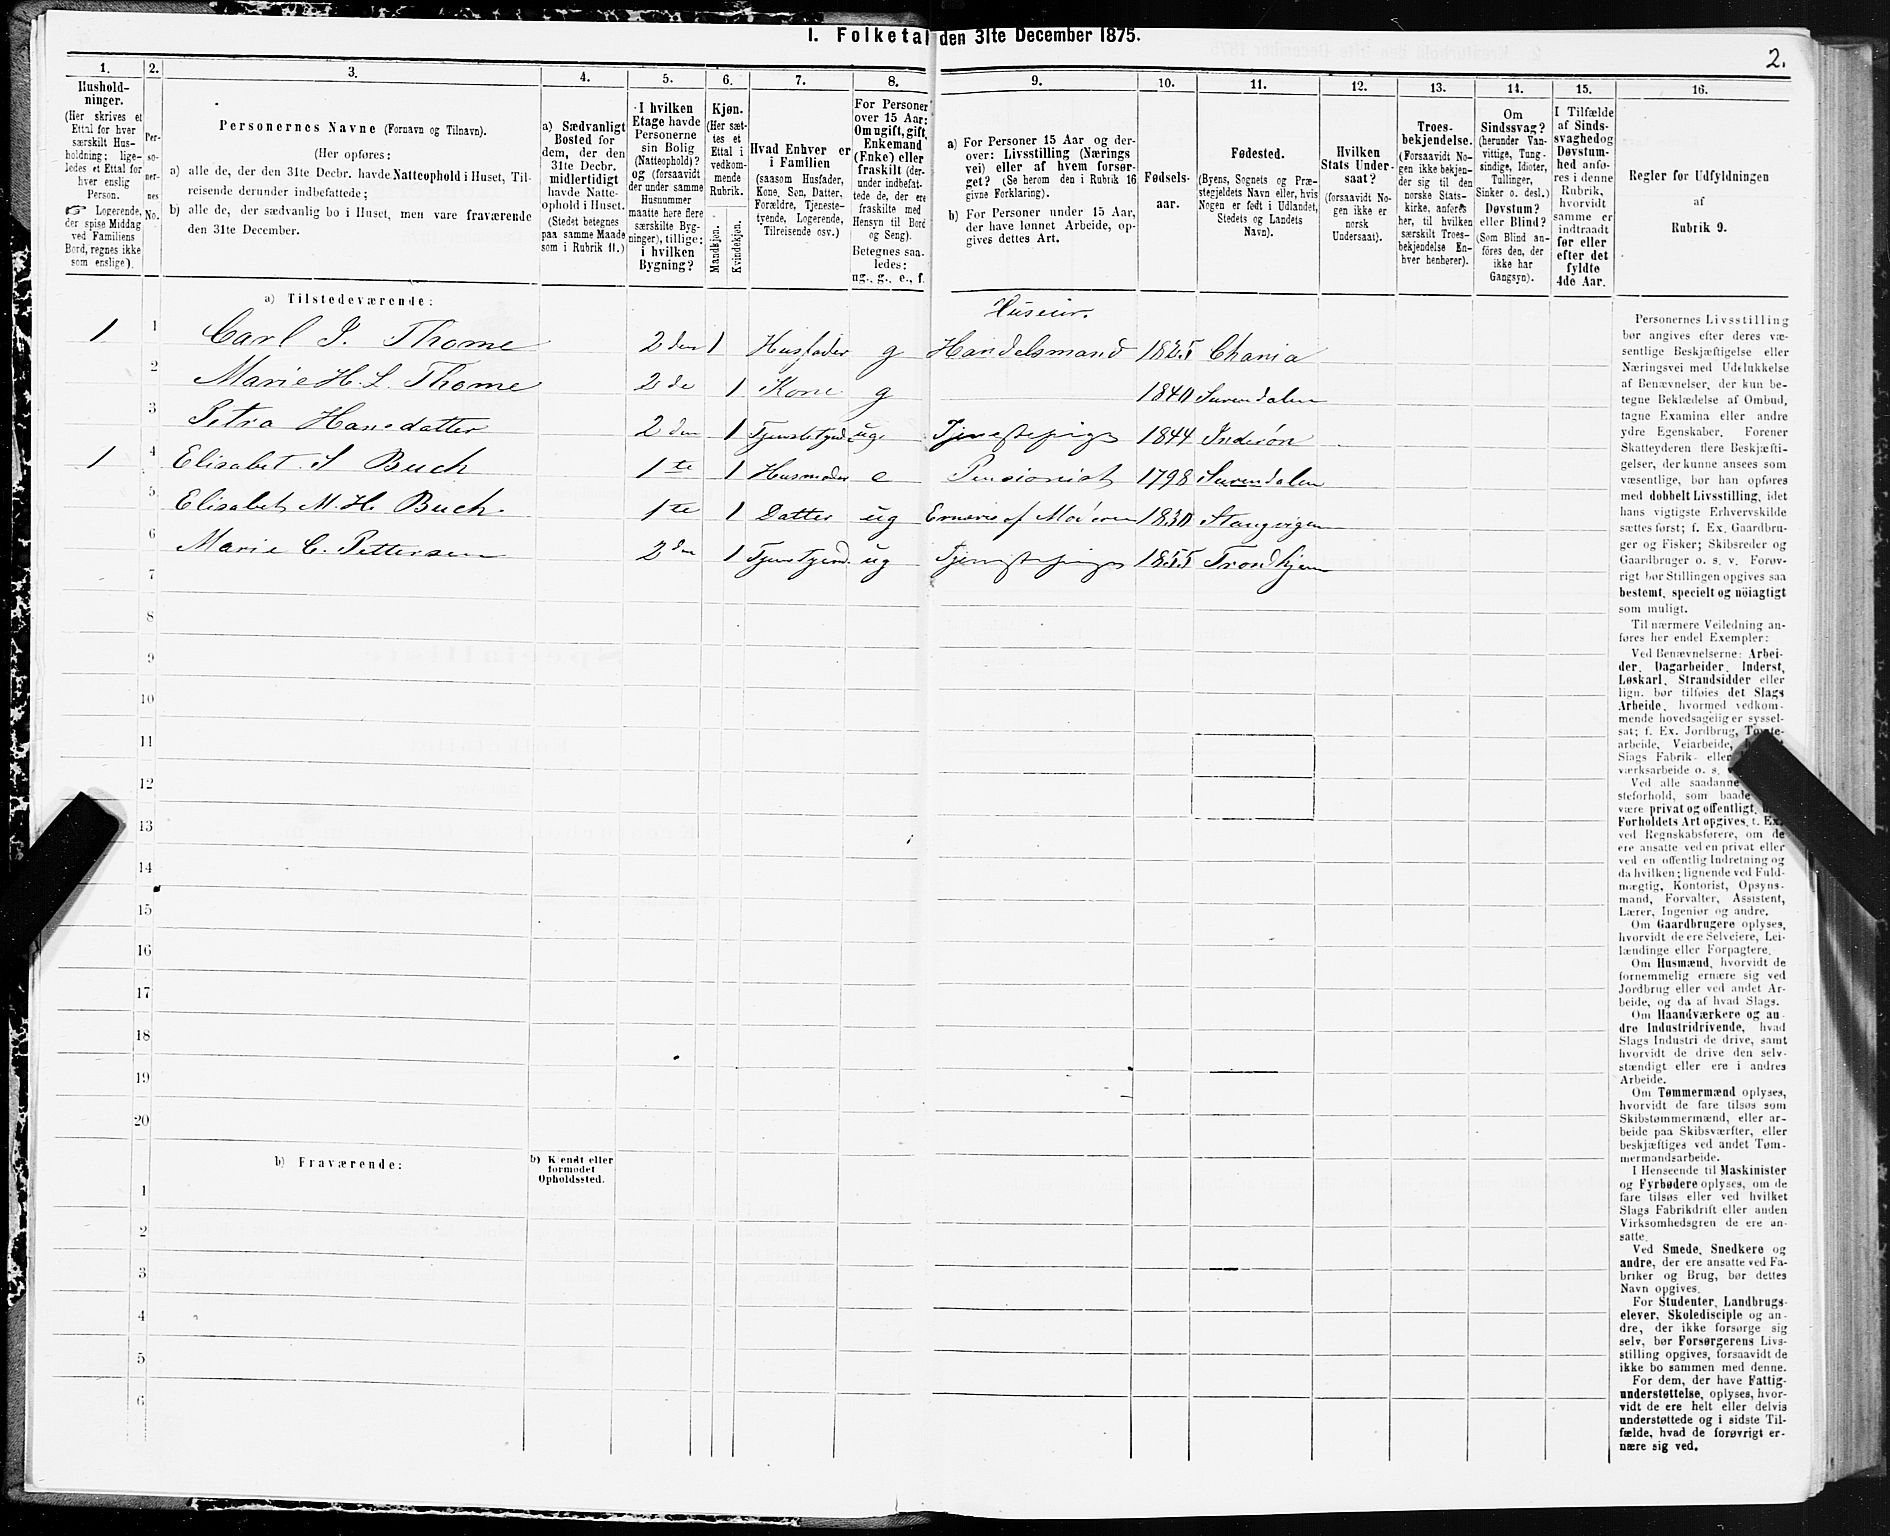 I. Folketal den 31te December 1875.
2.
1. 2. 3. 4. 5. 6. 7. 8. 9. 10. 11. 12. 13. 14. 15. 16.
Hushold-
ninger.
(Her skrives et
Ettal for hver
særskilt Hus-
holdning; lige-
ledes et Ettal for
hver enslig
Person.
☞ Logerende,
der spise Middag
ved Familiens
Bord, regnes ikke
som enslige).
Per-
so-
ner-
nes
No.
Personernes Navne (Fornavn og Tilnavn).
(Her opføres:
a) alle de, der den 31te Decbr. havde Natteophold i Huset, Til-
reisende derunder indbefattede;
b) alle de, der sædvanlig bo i Huset, men vare fraværende
den 31te December.
a) Sædvanligt
Bosted for
dem, der den
31te Decbr.
midlertidigt
havde Natte-
ophold i Huset.
(Stedet betegnes
paa samme Maade
som i Rubrik 11.)
I hvilken
Etage havde
Personerne
sin Bolig
(Natteophold)?
og (forsaavidt
der under samme
Husnummer
maatte høre flere
særskilte Byg-
ninger), tillige:
i hvilken
Bygning?
Kjøn.
(Her sæt-
tes et
Ettal i
vedkom-
mende
Rubrik.
Mandkjøn.
Kvindekjøn.
Hvad Enhver er
i Familien
(saasom Husfader,
Kone, Søn, Datter,
Forældre, Tjeneste-
tyende, Logerende,
Tilreisende osv.)
For Personer
over 15 Aar:
Om ugift, gift,
Enkemand
(Enke) eller
fraskilt (der-
under indbefat-
tede de, der ere
fraskilte med
Hensyn til Bord
og Seng).
Betegnes saa-
ledes:
ug., g., e., f.
a) For Personer 15 Aar og der-
over: Livsstilling (Nærings
vei) eller af hvem forsør-
get? (Se herom den i Rubrik 16
givne Forklaring).
b) For Personer under 15 Aar,
der have lønnet Arbeide, op-
gives dettes Art.
Fødsels-
aar.
Fødested.
(Byens, Sognets og Præ-
stegjeldets Navn eller, hvis
Nogen er født i Udlandet,
Stedets og Landets
Navn).
Hvilken
Stats Under-
saat?
(forsaavidt No-
gen ikke er
norsk
Undersaat).
Troes-
bekjendelse.
(Forsaavidt No-
gen ikke bekjen-
der sig til den
norske Stats-
kirke, anføres
her, til hvilken
særskilt Troes-
bekjendelse En-
hver henhører).
Om
Sindssvag?
(herunder Van-
vittige, Tung-
sindige, Idioter,
Tullinger,
Sinker o. desl.)
Døvstum?
eller Blind?
(Som Blind an-
føres den, der
ikke har
Gangsyn).
I Tilfælde
af Sinds-
svaghed og
Døvstum-
hed anfø-
res i denne
Rubrik,
hvorvidt
samme er
indtraadt
før eller
efter det
fyldte
4de Aar.
Regler for Udfyldningen
af
Rubrik 9.
a) Tilstedeværende:
Huseier.
1 1 Carl J. Thome 2den 1 Husfader g Handelsmand 1825 Chania
2 Marie H. L. Thome 2de 1 Kone g 1840 Surendalen
3 Petra Hansdatter 2den 1 ug. Tjenestepige 1844 Inderøn
1 4 Elisabet S Buch 1te 1 Husmoder e Pensionist 1798 Surendalen
5 Elisabet M. H. Buch 1te 1 Datter ug Ernæres af Moderen 1830 Stangvigen
6 Marie C. Pettersen 2den 1 ug Tjenestepige 1855 Trondhjem
7
8
9
10
11
12
13
14
15
16
17
18
19
20
b) Fraværende:
b) Kjendt eller
formodet
Opholdssted.
1
2
3
4
5
6
Personernes Livsstilling
bør angives efter deres væ-
sentlige Beskjæftigelse eller
Næringsvei med Udelukkelse
af Benævnelser, der kun be-
tegne Beklædelse af Ombud,
tagne Examina eller andre
ydre Egenskaber. Forener
Skatteyderen flere Beskjæfti-
gelser, der kunne ansees som
væsentlige, bør han opføres
med dobbelt Livsstilling, idet
hans vigtigste Erhvervskilde
sættes først; f. Ex. Gaardbru-
ger og Fisker; Skibsreder og
Gaardbruger o. s. v. Forøv-
rigt bør Stillingen opgives saa
bestemt, specielt og nöiagtigt
som muligt.
Til nærmere Veiledning an-
føres her endel Exempler:
Ved Benævnelserne: Arbei-
der, Dagarbeider, Inderst,
Løskarl, Strandsidder eller
lign. bør tilføies det Slags
Arbeide, hvormed vedkom-
mende hovedsagelig er syssel-
sat; f. Ex. Jordbrug, Tomte-
arbeide, Veiarbeide,
Slags Fabrik- eller
værksarbeide o. s.
Ved alle saadanne
steforhold, som baade
være privat og offentligt,
Forholdets Art opgives, f. Ex.
ved Regnskabsførere, om de
ere ansatte ved en privat eller
ved en offentlig Indretning og
da hvilken; lignende ved Fuld-
mægtig, Kontorist, Opsyns-
mand, Forvalter, Assistent,
Lærer, Ingeniør og andre.
Om Gaardbrugere oplyses,
hvorvidt de ere Selveiere, Lei-
lændinge eller Forpagtere.
Om Husmænd, hvorvidt de
fornemmelig ernære sig ved
Jordbrug eller ved andet Ar-
beide, og da af hvad Slags.
Om Haandværkere og an-
dre Industridrivende, hvad
Slags Industri de drive, samt
hvorvidt de drive den selv-
stændigt eller ere i andres
Arbeide.
Om Tømmermænd oplyses,
hvorvidt de fare tilsøs som
Skibstømmermænd, eller ar-
beide paa Skibsværfter, eller
beskjæftiges ved andet Tøm-
mermandsarbeide.
I Henseende til Maskinister
og Fyrbødere oplyses, om de
fare tilsøs eller ved hvilket
Slags Fabrikdrift eller anden
Virksomhedsgren de ere an-
satte.
Ved Smede, Snedkere og
andre, der ere ansatte ved Fa-
briker og Brug, bør dettes
Navn opgives.
For Studenter, Landbrugs-
elever, Skoledisciple og an-
dre, der ikke forsørge sig
selv, bør Forsørgerens Livs-
stilling opgives, forsaavidt de
ikke bo sammen med denne.
For dem, der have Fattig-
understøttelse, oplyses, hvor-
vidt de ere helt eller delvis
understøttede og i sidste Til-
fælde, hvad de forøvrigt er-
nære sig ved.